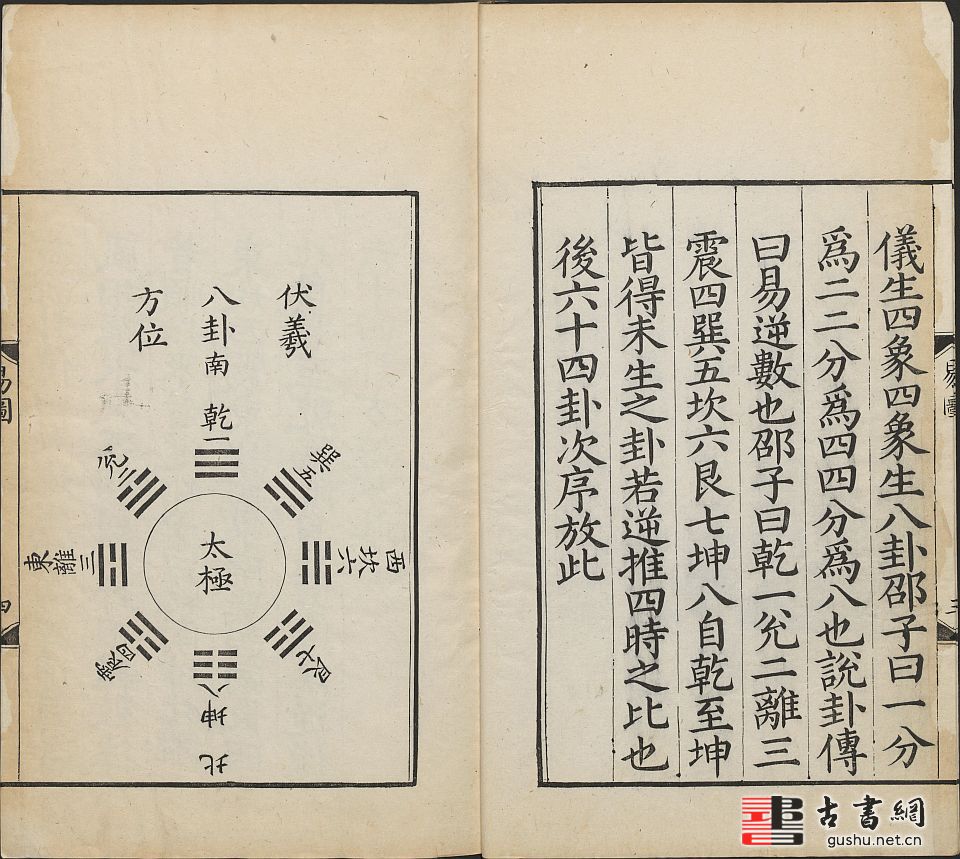 儀生四象四象生八卦邵子曰一分
爲二二分爲四四分爲八也說卦傳
曰易逆數也邵子曰乾一兊二離三
震四巽五坎六艮七坤八自乾至坤
皆得未生之卦若逆推四時之比也
後六十四卦次序放此
伏羲
八卦
方位
南
乾一
巽五
西
坎六
艮七
坤八
北
震四
東
離三
兊二
太極
易圖
四
易圖
三
古書網
gushu.net.cn